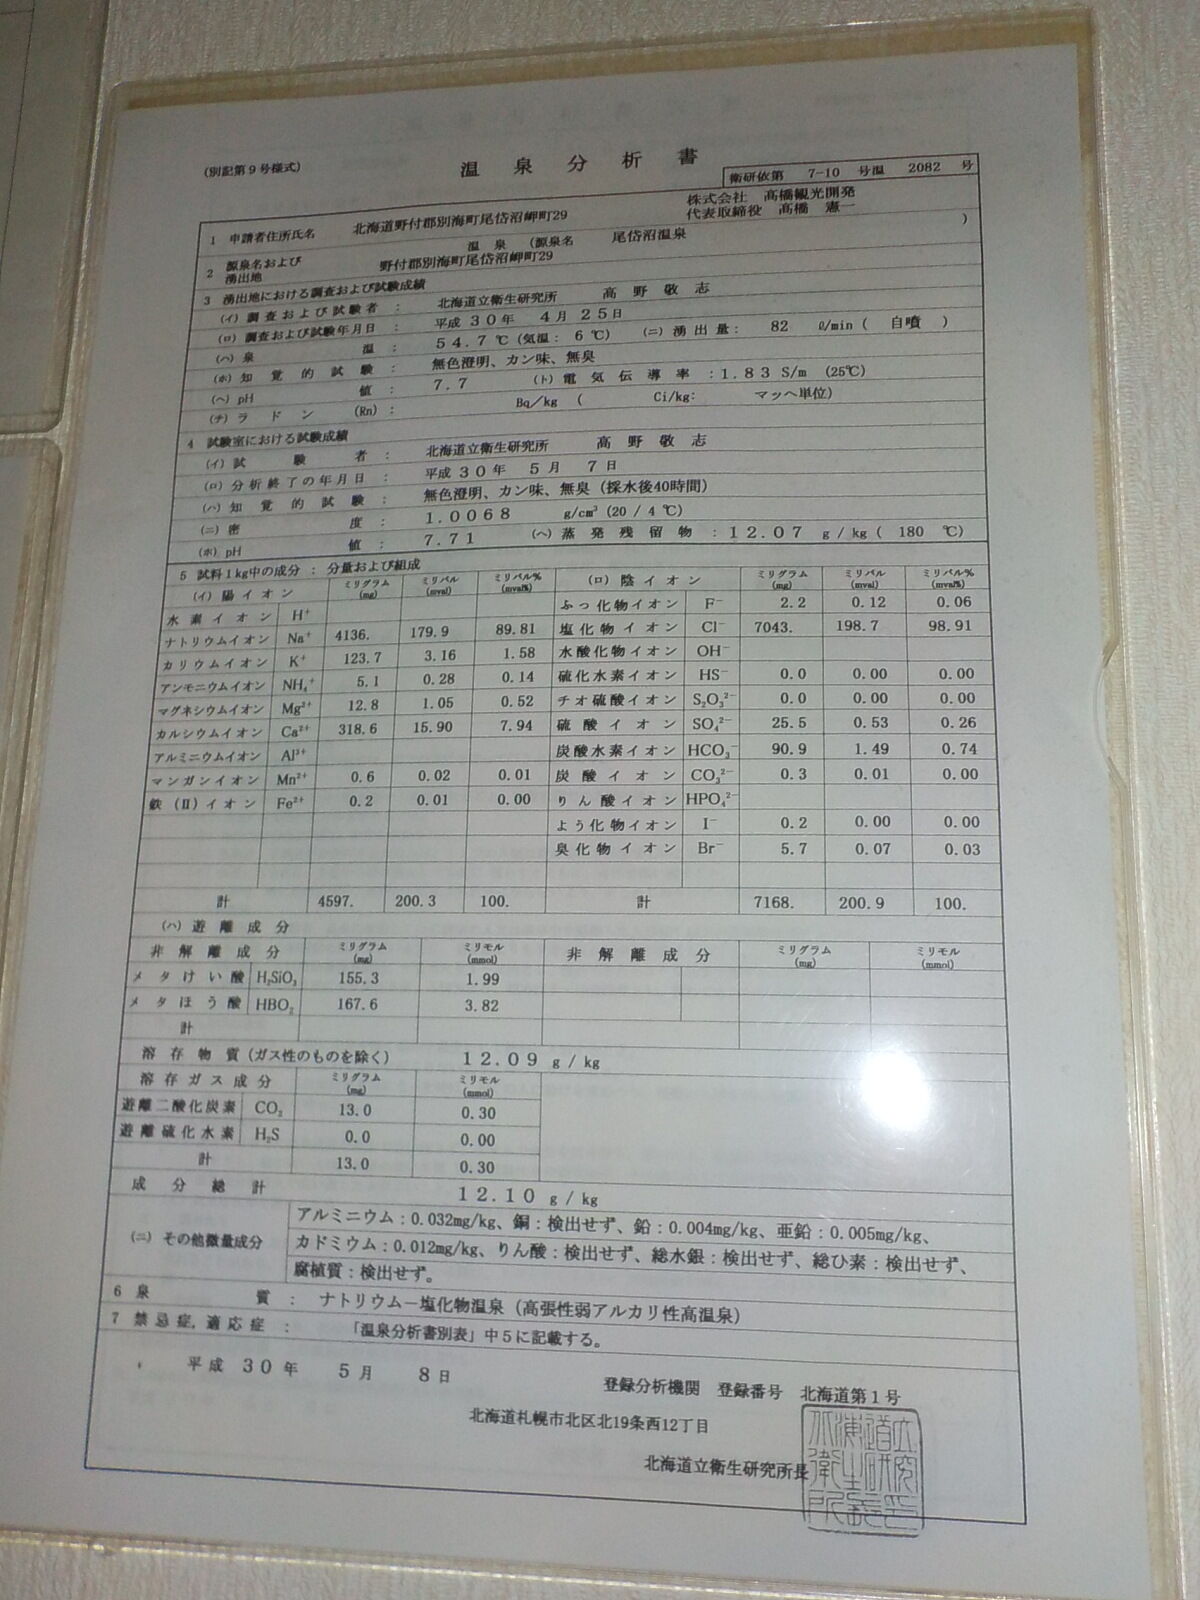 (別記第9号様式)
温泉分析書
衛研依第 7-10 号温 2082 号
1 申請者住所氏名 北海道野付郡別海町尾岱沼岬町29 株式会社 髙橋観光開発
代表取締役 髙橋 憲一
2 源泉名および湧出地 温泉 (源泉名 尾岱沼温泉 )
野付郡別海町尾岱沼岬町29
3 湧出地における調査および試験成績
(イ) 調査および試験者 : 北海道立衛生研究所 高野敬志
(ロ) 調査および試験年月日 : 平成30年 4月25日
(ハ) 泉温 : 54.7℃ (気温: 6℃) (ニ) 湧出量: 82 ℓ/min ( 自噴 )
(ホ) 知覚的試験 : 無色澄明、カン味、無臭
(ヘ) pH値 : 7.7 (ト) 電気伝導率 : 1.83 S/m (25℃)
(チ) ラドン (Rn) : Bq/kg ( Ci/kg: マッヘ単位)
4 試験室における試験成績
(イ) 試験者 : 北海道立衛生研究所 高野敬志
(ロ) 分析終了の年月日 : 平成30年 5月 7日
(ハ) 知覚的試験 : 無色澄明、カン味、無臭 (採水後40時間)
(ニ) 密度 : 1.0068 g/cm³ (20 / 4 ℃)
(ホ) pH値 : 7.71 (ヘ) 蒸発残留物 : 12.07 g/kg ( 180 ℃)
5 試料1kg中の成分 : 分量および組成
(イ) 陽イオン ミリグラム (mg) ミリバル (mval) ミリバル% (mval%) (ロ) 陰イオン ミリグラム (mg) ミリバル (mval) ミリバル% (mval%)
水素イオン H⁺ ふっ化物イオン F⁻ 2.2 0.12 0.06
ナトリウムイオン Na⁺ 4136. 179.9 89.81 塩化物イオン Cl⁻ 7043. 198.7 98.91
カリウムイオン K⁺ 123.7 3.16 1.58 水酸化物イオン OH⁻
アンモニウムイオン NH₄⁺ 5.1 0.28 0.14 硫化水素イオン HS⁻ 0.0 0.00 0.00
マグネシウムイオン Mg²⁺ 12.8 1.05 0.52 チオ硫酸イオン S₂O₃²⁻ 0.0 0.00 0.00
カルシウムイオン Ca²⁺ 318.6 15.90 7.94 硫酸イオン SO₄²⁻ 25.5 0.53 0.26
アルミニウムイオン Al³⁺ 炭酸水素イオン HCO₃⁻ 90.9 1.49 0.74
マンガンイオン Mn²⁺ 0.6 0.02 0.01 炭酸イオン CO₃²⁻ 0.3 0.01 0.00
鉄(II)イオン Fe²⁺ 0.2 0.01 0.00 りん酸イオン HPO₄²⁻
よう化物イオン I⁻ 0.2 0.00 0.00
臭化物イオン Br⁻ 5.7 0.07 0.03
計 4597. 200.3 100. 計 7168. 200.9 100.
(ハ) 遊離成分
非解離成分 ミリグラム (mg) ミリモル (mmol) 非解離成分 ミリグラム (mg) ミリモル (mmol)
メタけい酸 H₂SiO₃ 155.3 1.99
メタほう酸 HBO₂ 167.6 3.82
計
溶存物質 (ガス性のものを除く) 12.09 g/kg
溶存ガス成分 ミリグラム (mg) ミリモル (mmol)
遊離二酸化炭素 CO₂ 13.0 0.30
遊離硫化水素 H₂S 0.0 0.00
計 13.0 0.30
成分総計 12.10 g/kg
(ニ) その他微量成分 アルミニウム:0.032mg/kg、銅:検出せず、鉛:0.004mg/kg、亜鉛:0.005mg/kg、
カドミウム:0.012mg/kg、りん酸:検出せず、総水銀:検出せず、総ひ素:検出せず、
腐植質:検出せず。
6 泉質 : ナトリウム-塩化物温泉 (高張性弱アルカリ性高温泉)
7 禁忌症,適応症 : 「温泉分析書別表」中5に記載する。
平成30年 5月 8日
登録分析機関 登録番号 北海道第1号
北海道札幌市北区北19条西12丁目
北海道立衛生研究所長